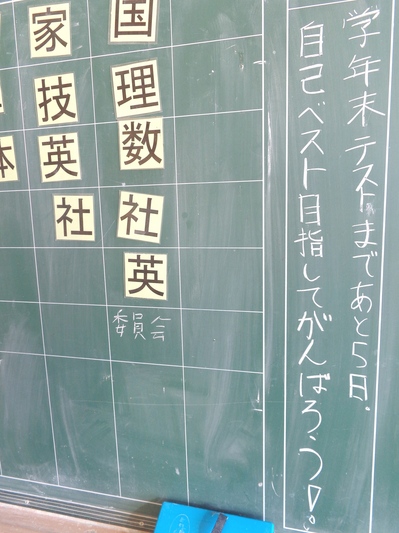 学年末テストまであと5日.
自己ベスト目指してがんばろう!。
国
理
数
社
英
委員会
家
技
英
社
体